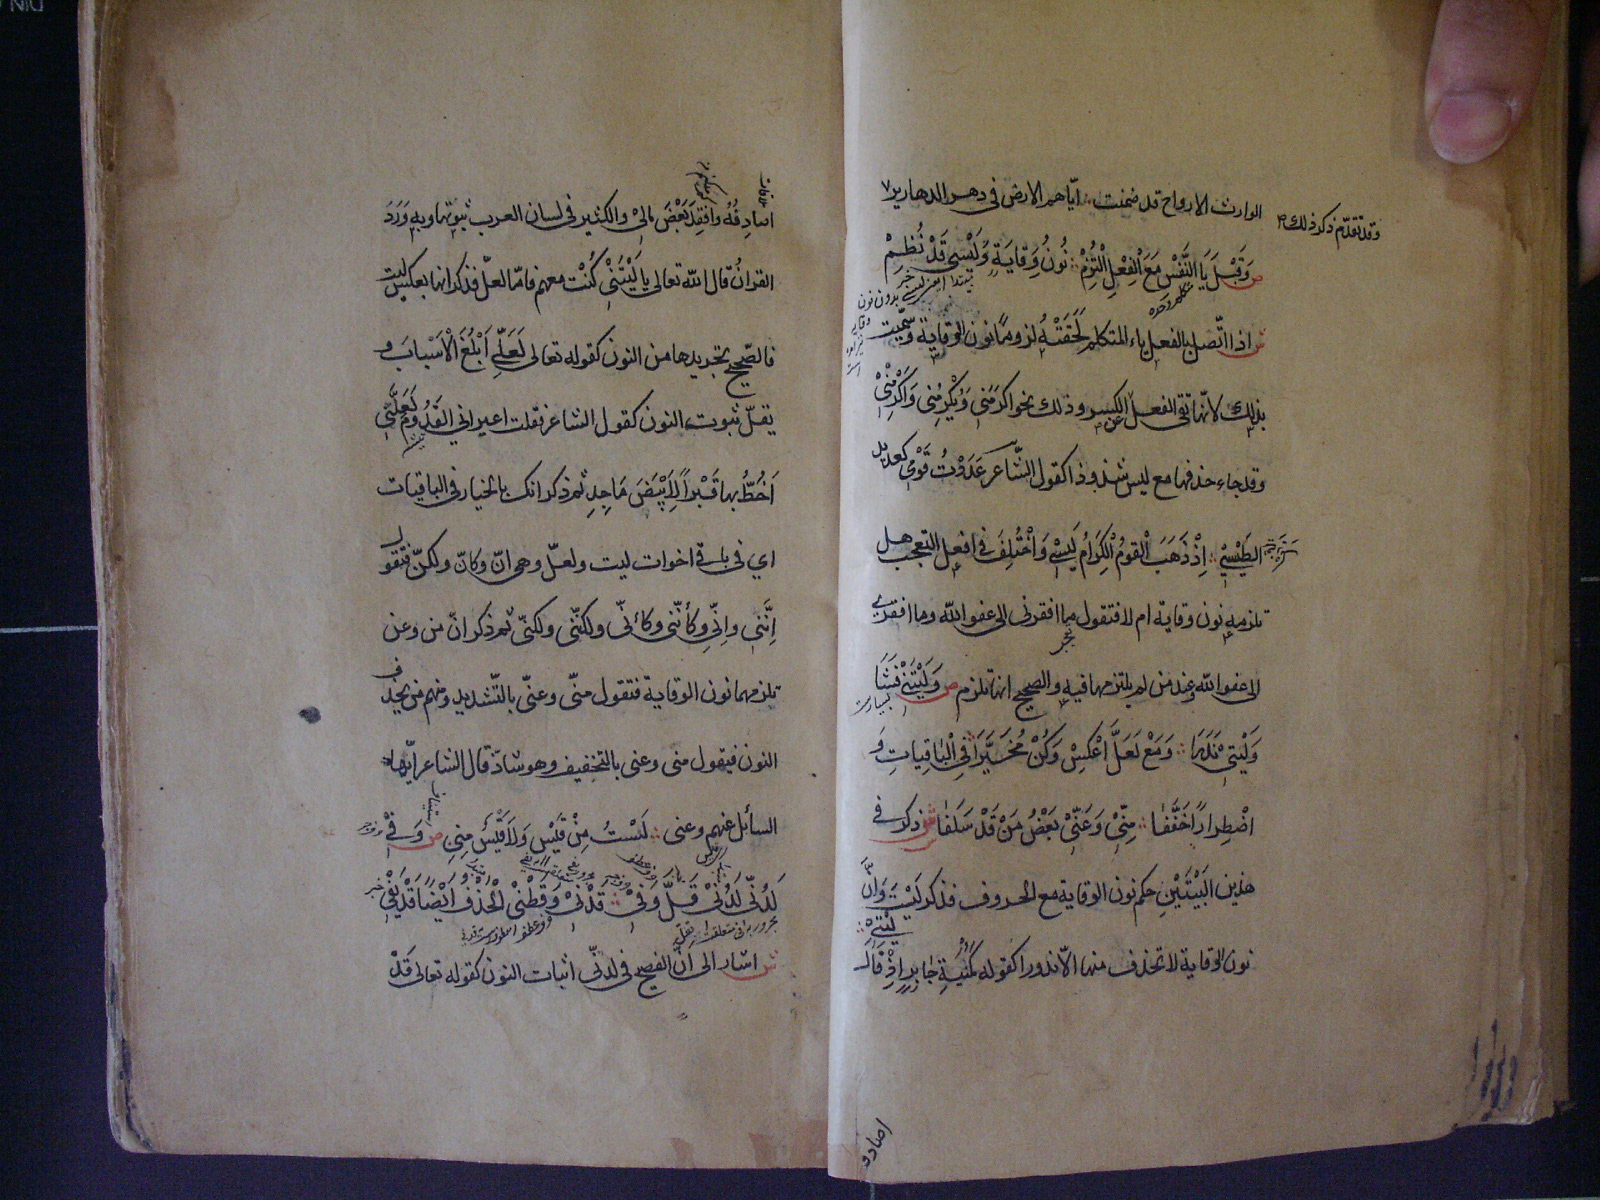 الوارث الارواح قد ضمنت ∴ ايّاهم الارض فى دهر الدهارير
وقد تقدّم ذكر ذلك
ص وَقَبْلَ يَا النَّفْسِ مَعَ الْفِعْلِ الْتُزِمْ ∴ نُونُ وِقَايَةٍ وَلَيْسِى قَدْ نُظِمْ
ش اذا اتّصل بالفعل ياء المتكلم لَحِقَتْهُ لزومًا نون الوقاية وسمّيت
بذلك لانّها تقى الفعل عن الكسر وذلك نحو اكرَمَنى وَيُكْرِمُنى وَاَكْرِمْنِىْ
وقد جاء حذفها مع ليس شذوذا كقول الشّاعر عَدَدْتُ قَوْمِى كعديد
الطَّيْسِىْ ∴ اِذْ ذَهَبَ الْقومُ الْكِرَامُ لَيْسِى وَاخْتُلِفَ فى افعل التعجب هل
تلزمه نون وقاية ام لا فتقول ما افقرنى الى عفو الله وما افقرى
الى عفو الله عند من لم يلتزمها فيه والصحيح انها تلزم ص وَلَيْتَنِىْ فَشَا
وَلَيْتِىْ نَدَرَا ∴ وَمَعْ لَعَلَّ اعْكِسْ وَكُنْ مُخَيَّرًا فِى الْبَاقِيَاتِ وَ
اضْطِرَارًا خَفَّفَا ∴ مِنِّىْ وَعَنِّىْ بَعْضُ مَنْ قَدْ سَلَفَا ش ذكر فى
هذين البَيْتَيْنِ حكم نون الوقاية مع الحروف فذكر لَيْتَ وَاَنَّ
نون الوقاية لا تحذف منها الّا ندورا كقوله كَمُنْيَةِ جَابِرٍ اِذْ قَالَ لَيْتِىْ ∴
اصادفه
اصادِفُهُ وَاَفْقِدُ بَعْضَ مالِىْ والكثير فى لسان العرب ثبوتها وبه وَرَدَ
القرانُ قال الله تعالى يا لَيْتَنِىْ كُنْت معهم فامّا لعلّ فذكر انها بعكس ليت
فالصّحيح تجريدها من النون كقوله تعالى لَعَلِّى اَبْلُغُ الْاَسْبَابَ و
يقلّ ثبوت النون كقول الشاعر فقلت اعيرانى القَدُومَ لَعَلَّنِى
اَخُطُّ بها قَبْرًا لِاَبْيَضَ مَاجِدِ ثم ذكر انك بالخيار فى الباقيات
اي فى باقى اخوات ليت ولعلّ وهى انّ وكانّ ولكنّ فتقول
اِنَّنى واِنِّى وكَأنَّنى وكانّى ولكنّنى ولكنّى ثم ذكر انّ من وعن
تلزمهما نون الوقاية فتقول منّى وعنّى بالتّشديد ومنهم من يحذف
النون فيقول منى وعنى بالتخفيف وهو شاذّ قال الشاعر ايّها
السائل عنهم وعنى ∴ لَسْتُ مِنْ قَيْسَ وَلَا قَيْسُ مِنِى ص وَفِىْ
لَدُنِّى لَدُنِىْ قَلَّ وَفِىْ ∴ قَدْنِىْ وَقَطْنِىْ الْحَذْفُ اَيْضًا قَدْ يَفِىْ
ش اشار الى انّ الفصيح فى لدنّى اثبات النون كقوله تعالى قَدْ